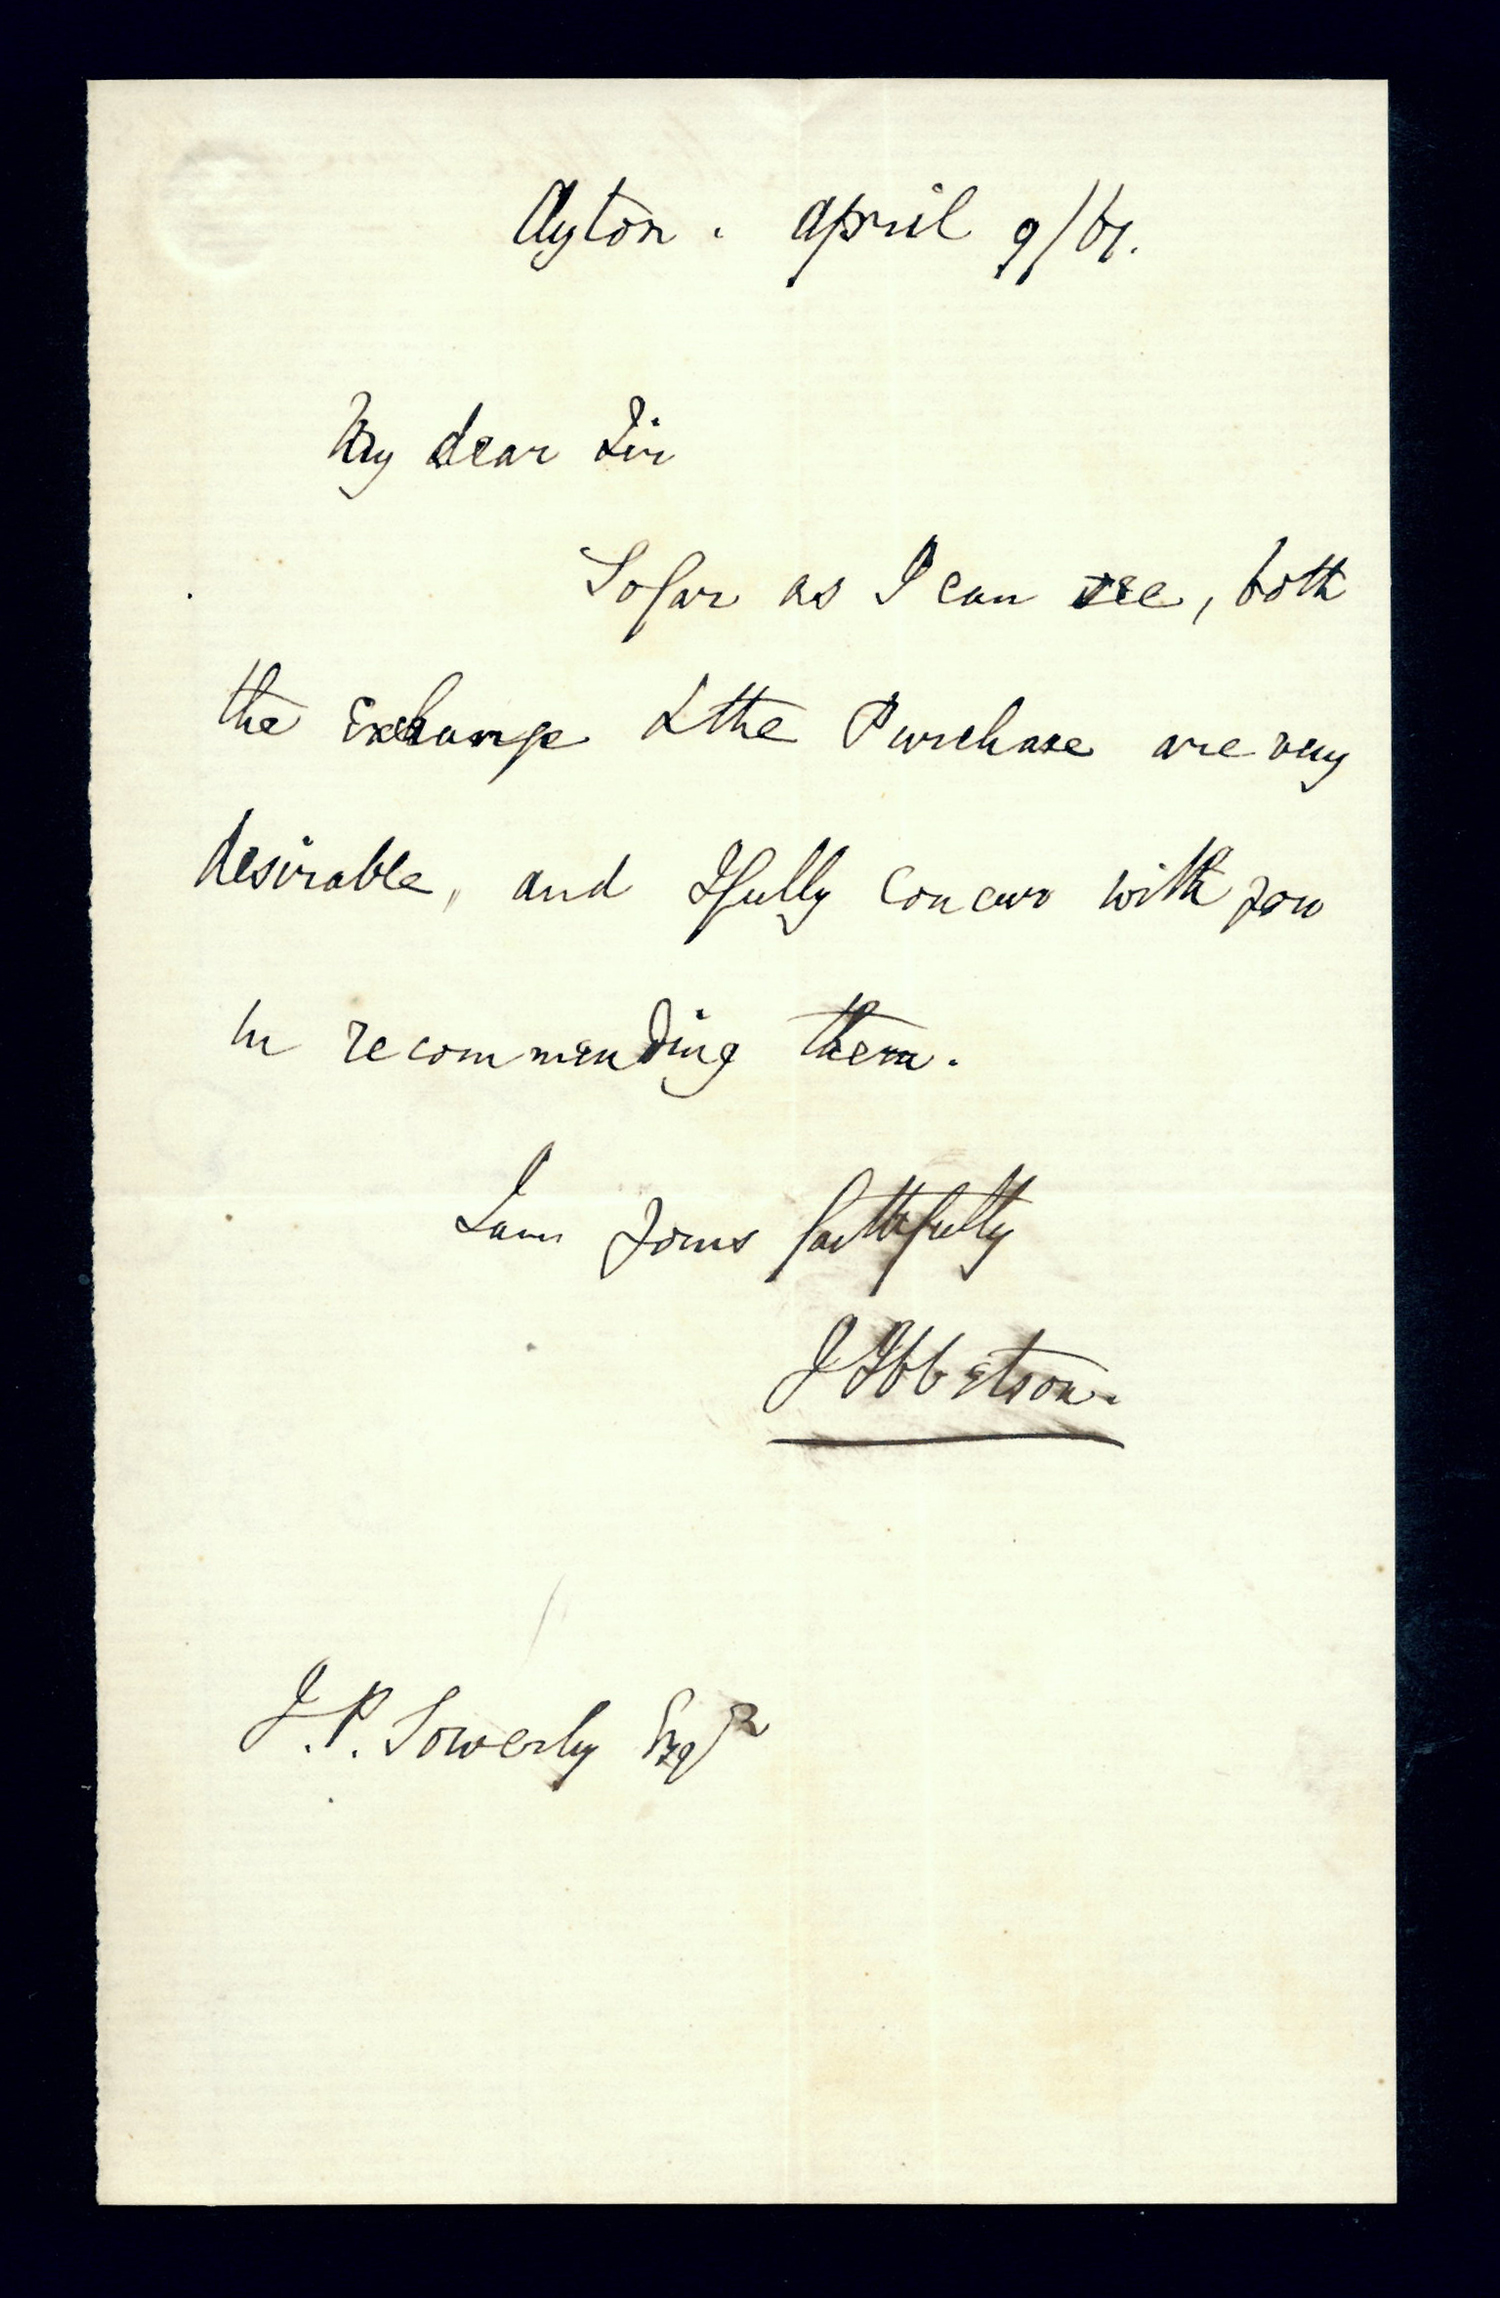 Ayton . April 9/61.
My dear Sir
So far as I can see, both
the Exchange & the Purchase are very
desirable, and I fully concur with you
in recommending them.
I am yours faithfully
J Ibbetson.
J. P. Sowerby Esqr